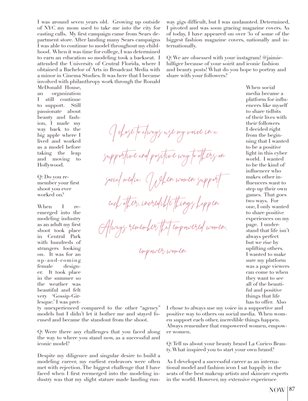 I was around seven years old. Growing up outside
of NYC my mom used to take me into the city for
casting calls. My first campaign came from Sears de-
partment store. After landing many Sears campaigns
I was able to continue to model throughout my child-
hood. When it was time for college, I was determined
to earn an education so modeling took a backseat. I
attended the University of Central Florida, where I
obtained a Bachelor of Arts in Broadcast Media with
a minor in Cinema Studies. It was here that I became
involved with philanthropy work through the Ronald
McDonald House,
an organization
I still continue
to support. Still
passionate about
beauty and fash-
ion, I made my
way back to the
big apple where I
lived and worked
as a model before
taking the leap
and moving to
Hollywood.
Q: Do you re-
member your first
shoot you ever
worked on?
When I re-
emerged into the
modeling industry
as an adult my first
shoot took place
in Central Park
with hundreds of
strangers looking
on. It was for an
up-and-coming
female design-
er. It took place
in the summer so
the weather was
beautiful and felt
very "Gossip-Gir-
lesque" I was pret-
ty unexperienced compared to the other "agency"
models but I didn't let it bother me and stayed fo-
cused and became the standout from the shoot.
Q: Were there any challenges that you faced along
the way to where you stand now, as a successful and
iconic model?
Despite my diligence and singular desire to build a
modeling career, my earliest endeavors were often
met with rejection. The biggest challenge that I have
faced when I first reemerged into the modeling in-
dustry was that my slight stature made landing run-
I chose to always use my voice in a
supportive and positive way to others on
social media. When women support
each other, incredible things happen.
Always remember that empowered women,
empower women.
way gigs difficult, but I was undaunted. Determined,
I pivoted and was soon gracing magazine covers. As
of today, I have appeared on over 50 of some of the
biggest fashion magazine covers, nationally and in-
ternationally.
Q: We are obsessed with your instagram! @jaimie-
hilfiger because of your worit and iconic fashion
and beauty posts! What do you hope to portray and
share with your followers?
When social
media became a
platform for influ-
encers like myself
to share tidbits
of their lives with
their followers
I decided right
from the begin-
ning that I wanted
to be a positive
light in this cyber
world. I wanted
to be the kind of
influencer who
makes other in-
fluencers want to
step up their own
games. That goes
two ways. For
one, I only wanted
to share positive
experiences on my
page. I under-
stand that life isn't
always perfect
but we rise by
uplifting others.
I wanted to make
sure my platform
was a page viewers
can come to when
they want to see
all of the beauti-
ful and positive
things that life
has to offer. Also
I chose to always use my voice in a supportive and
positive way to others on social media. When wom-
en support each other, incredible things happen.
Always remember that empowered women, empow-
er women.
Q: Tell us about your beauty brand La Curico Beau-
ty. What inspired you to start your own brand?
As I developed a successful career as an interna-
tional model and fashion icon I sat happily in the
seats of the best makeup artists and skincare experts
in the world. However, my extensive experience
NOW | 87